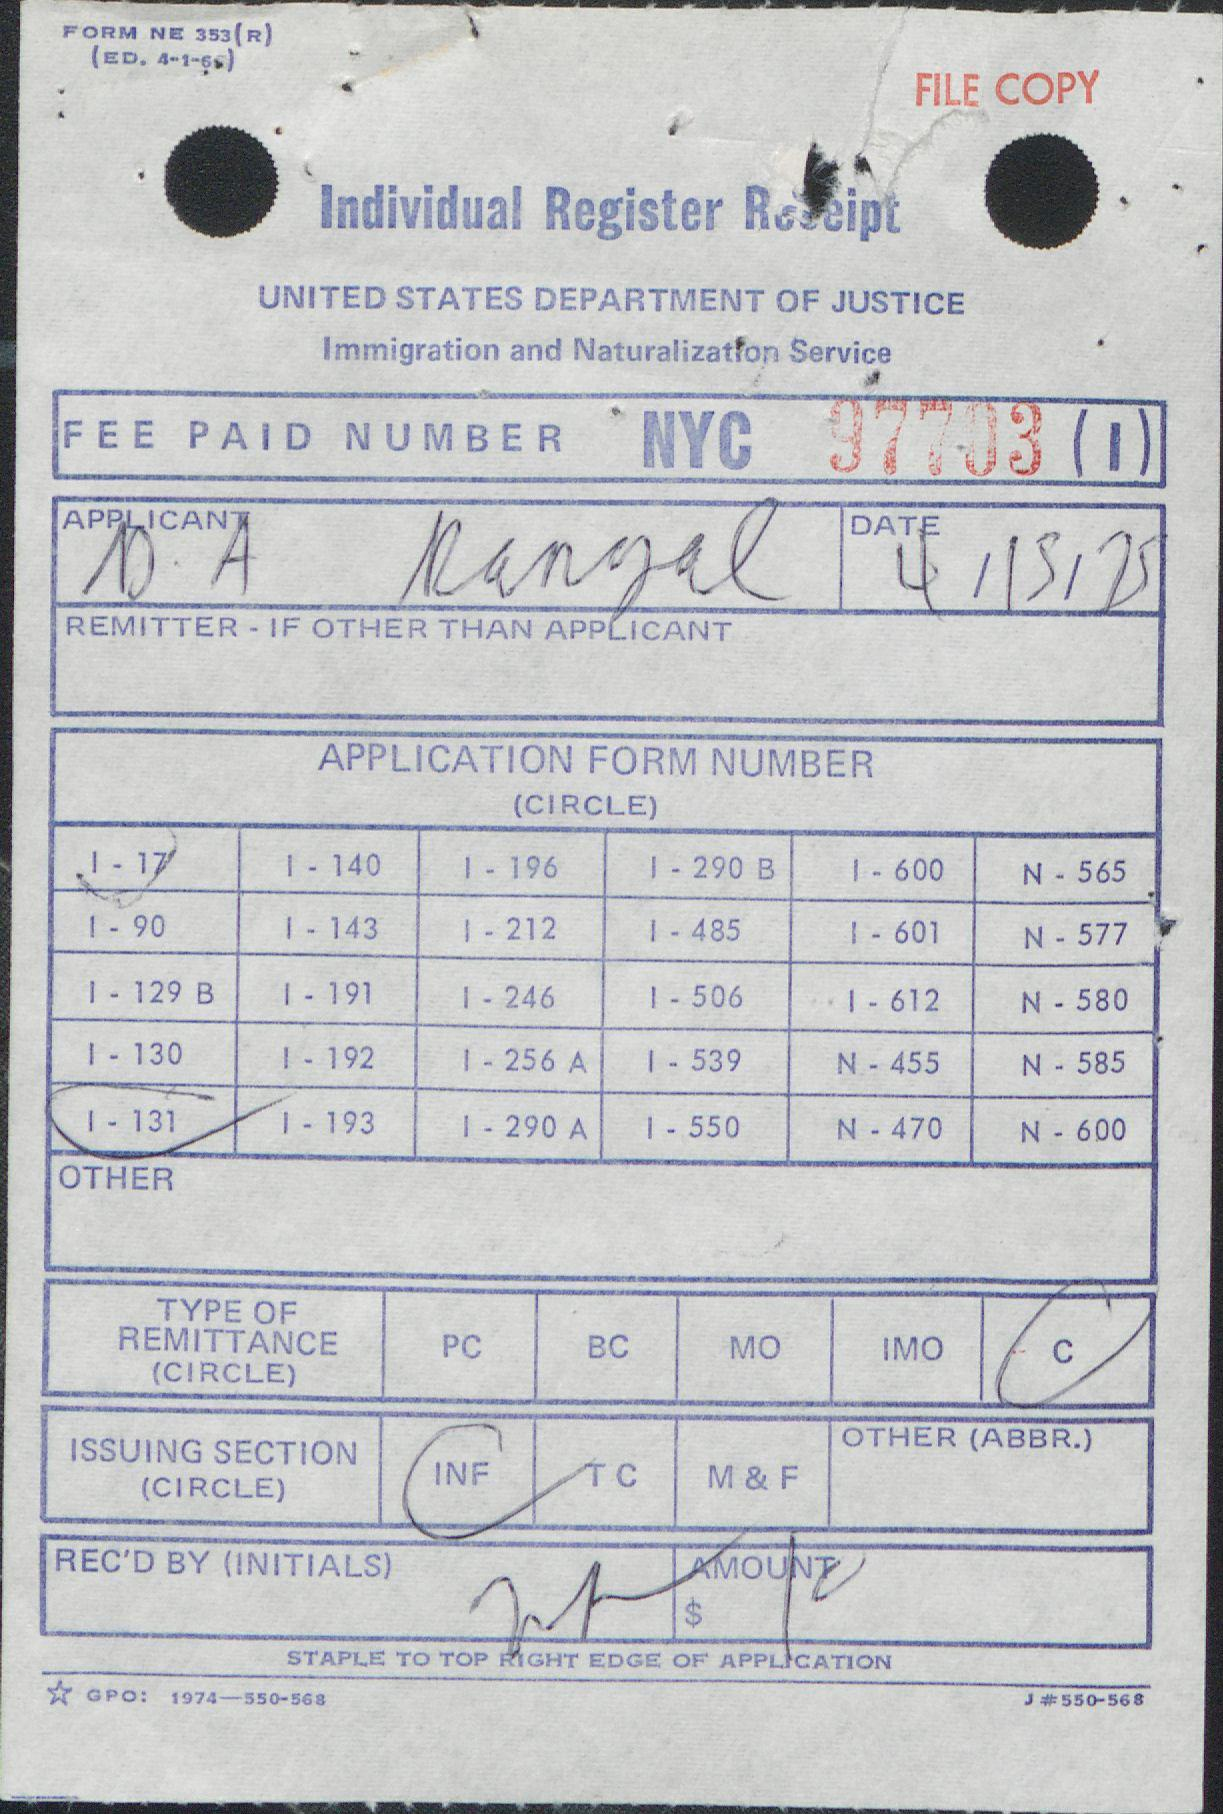 FORM NE 353(R)
(ED. 4-1-65)
FILE COPY
Individual Register Receipt
UNITED STATES DEPARTMENT OF JUSTICE
Immigration and Naturalization Service
FEE PAID NUMBER NYC 97703 (1)
APPLICANT DATE
A 4/13/75
REMITTER - IF OTHER THAN APPLICANT
APPLICATION FORM NUMBER
(CIRCLE)
I - 17 I - 140 I - 196 I - 290 B I - 600 N - 565
I - 90 I - 143 I - 212 I - 485 I - 601 N - 577
I - 129 B I - 191 I - 246 I - 506 I - 612 N - 580
I - 130 I - 192 I - 256 A I - 539 N - 455 N - 585
I - 131 I - 193 I - 290 A I - 550 N - 470 N - 600
OTHER
TYPE OF
REMITTANCE
(CIRCLE)
PC BC MO IMO C
ISSUING SECTION
(CIRCLE)
INF T C M & F
OTHER (ABBR.)
REC'D BY (INITIALS) AMOUNT
$ 10
STAPLE TO TOP RIGHT EDGE OF APPLICATION
☆ GPO: 1974—550-568 J#550-568